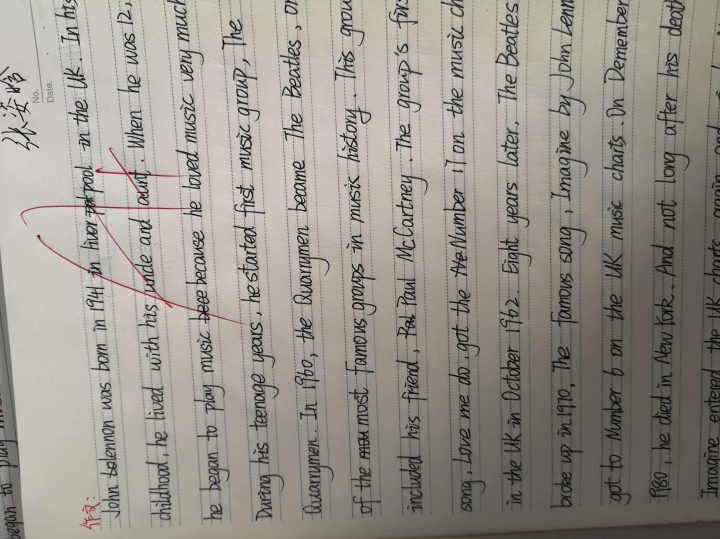 张姿晗
No.
Date.
作文:
John Lennon was born in 1941 in liverpool in the UK. In his
childhood, he lived with his uncle and aunt. When he was 12,
he began to play music because he loved music very much
During his teenage years, he started first music group, The
Quarrymen. In 1960, the Quarrymen became The Beatles, on
of the most famous groups in music history. This grou
included his friend, Paul McCartney. The group's firs
song, Love me do, got the Number 17 on the music ch
in the UK in October 1962. Eight years later. The Beatles
broke up in 1970, The famous song, Imagine by John Lenn
got to Number 6 on the UK music charts. On Demember
1980, he died in New York. And not long after his death
Imagine entered the UK charts again and
began to play